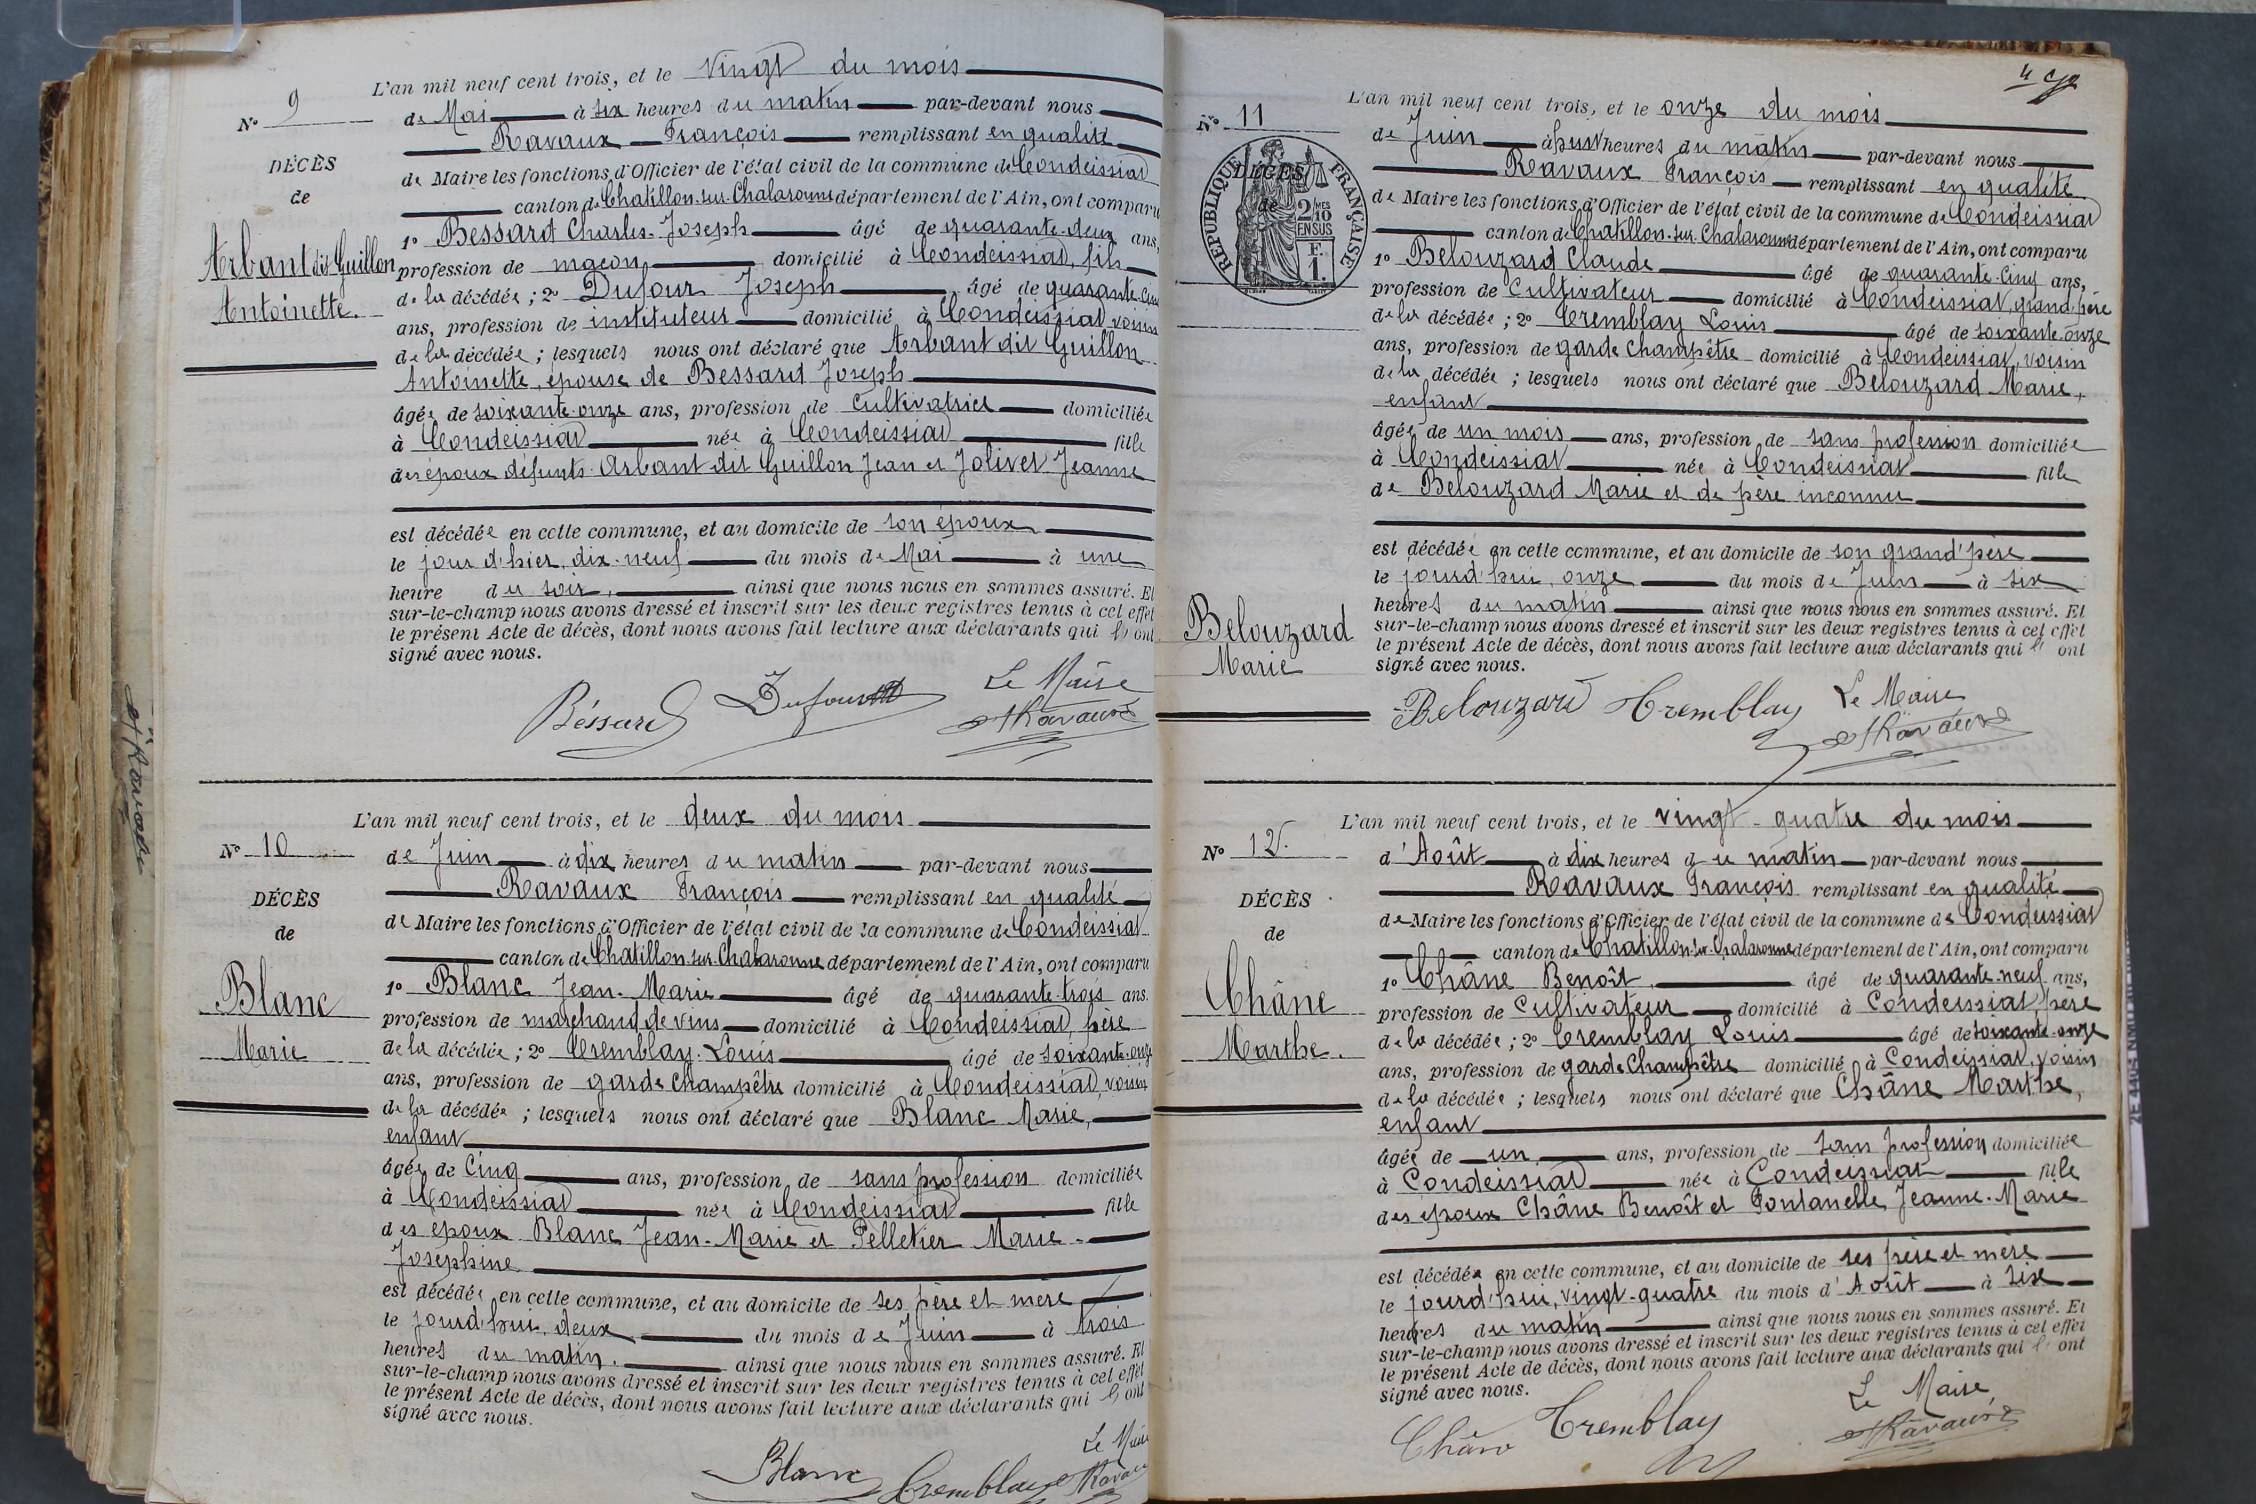 L'an mil neuf cent trois, et le vingt du mois
N° 9
de Mai à six heures du matin par-devant nous
Ravaux François remplissant en qualité
DÉCÈS
de Maire les fonctions d'Officier de l'état civil de la commune de Condeissiat
de
canton de Chatillon-sur-Chalaronne département de l'Ain, ont comparu
1° Bessard Charles-Joseph âgé de quarante-deux ans,
Arbant dit Guillon
profession de maçon domicilié à Condeissiat, fils
Antoinette.
de la décédée ; 2° Dufour Joseph âgé de quarante-cinq
ans, profession de instituteur domicilié à Condeissiat, voisin
de la décédée ; lesquels nous ont déclaré que Arbant dit Guillon
Antoinette, épouse de Bessard Joseph
âgée de soixante-onze ans, profession de cultivatrice domiciliée
à Condeissiat née à Condeissiat fille
des époux défunts Arbant dit Guillon Jean et Jolivet Jeanne
est décédée en cette commune, et au domicile de son époux
le jour d'hier, dix-neuf du mois de Mai à une
heure du soir, ainsi que nous nous en sommes assuré. Et
sur-le-champ nous avons dressé et inscrit sur les deux registres tenus à cet effet
le présent Acte de décès, dont nous avons fait lecture aux déclarants qui l'ont
signé avec nous.
Béssard Dufour Le Maire
Ravaux
L'an mil neuf cent trois, et le deux du mois
N° 10
de Juin à dix heures du matin par-devant nous
Ravaux François remplissant en qualité
DÉCÈS
de Maire les fonctions d'Officier de l'état civil de la commune de Condeissiat
de
canton de Chatillon-sur-Chalaronne département de l'Ain, ont comparu
Blanc
1° Blanc Jean-Marie âgé de quarante-trois ans.
profession de marchand de vins domicilié à Condeissiat, père
Marie
de la décédée ; 2° Tremblay Louis âgé de soixante-onze
ans, profession de garde champêtre domicilié à Condeissiat, voisin
de la décédée ; lesquels nous ont déclaré que Blanc Marie,
enfant
âgée de cinq ans, profession de sans profession domiciliée
à Condeissiat née à Condeissiat fille
des époux Blanc Jean-Marie et Pelletier Marie-
Joséphine
est décédée en cette commune, et au domicile de ses père et mère
le jourd'hui, deux du mois de Juin à trois
heures du matin. ainsi que nous nous en sommes assuré. Et
sur-le-champ nous avons dressé et inscrit sur les deux registres tenus à cet effet
le présent Acte de décès, dont nous avons fait lecture aux déclarants qui l'ont
signé avec nous.
Le Maire
Blanc Tremblay Ravaux
L'an mil neuf cent trois, et le onze du mois
N° 11
de Juin à huit heures du matin par-devant nous
Ravaux François remplissant en qualité
DÉCÈS
de
RÉPUBLIQUE FRANÇAISE
2/10 MES EN SUS
F. 1.
de Maire les fonctions d'Officier de l'état civil de la commune de Condeissiat
canton de Chatillon-sur-Chalaronne département de l'Ain, ont comparu
1° Belouzard Claude âgé de quarante-cinq ans,
profession de cultivateur domicilié à Condeissiat, grand-père
de la décédée ; 2° Tremblay Louis âgé de soixante-onze
ans, profession de garde champêtre domicilié à Condeissiat, voisin
de la décédée ; lesquels nous ont déclaré que Belouzard Marie,
enfant
âgée de un mois ans, profession de sans profession domiciliée
à Condeissiat née à Condeissiat fille
de Belouzard Marie et de père inconnu
est décédée en cette commune, et au domicile de son grand'père
le jourd'hui, onze du mois de Juin à six
heures du matin ainsi que nous nous en sommes assuré. Et
Belouzard
Marie
sur-le-champ nous avons dressé et inscrit sur les deux registres tenus à cet effet
le présent Acte de décès, dont nous avons fait lecture aux déclarants qui l'ont
signé avec nous.
Belouzard Tremblay Le Maire
Ravaux
L'an mil neuf cent trois, et le vingt-quatre du mois
N° 12.
d'Août à dix heures du matin par-devant nous
Ravaux François remplissant en qualité
DÉCÈS
de Maire les fonctions d'Officier de l'état civil de la commune de Condeissiat
de
canton de Chatillon-sur-Chalaronne département de l'Ain, ont comparu
Châne
1° Châne Benoît, âgé de quarante-neuf ans,
profession de cultivateur domicilié à Condeissiat, père
Marthe.
de la décédée ; 2° Tremblay Louis âgé de soixante-onze
ans, profession de garde champêtre domicilié à Condeissiat, voisin
de la décédée ; lesquels nous ont déclaré que Châne Marthe,
enfant
âgée de un ans, profession de sans profession domiciliée
à Condeissiat née à Condeissiat fille
des époux Châne Benoît et Fontanelle Jeanne-Marie
est décédée en cette commune, et au domicile de ses père et mère
le jourd'hui, vingt-quatre du mois d'Août à six
heures du matin ainsi que nous nous en sommes assuré. Et
sur-le-champ nous avons dressé et inscrit sur les deux registres tenus à cet effet
le présent Acte de décès, dont nous avons fait lecture aux déclarants qui l'ont
signé avec nous.
Le Maire,
Châne Tremblay Ravaux